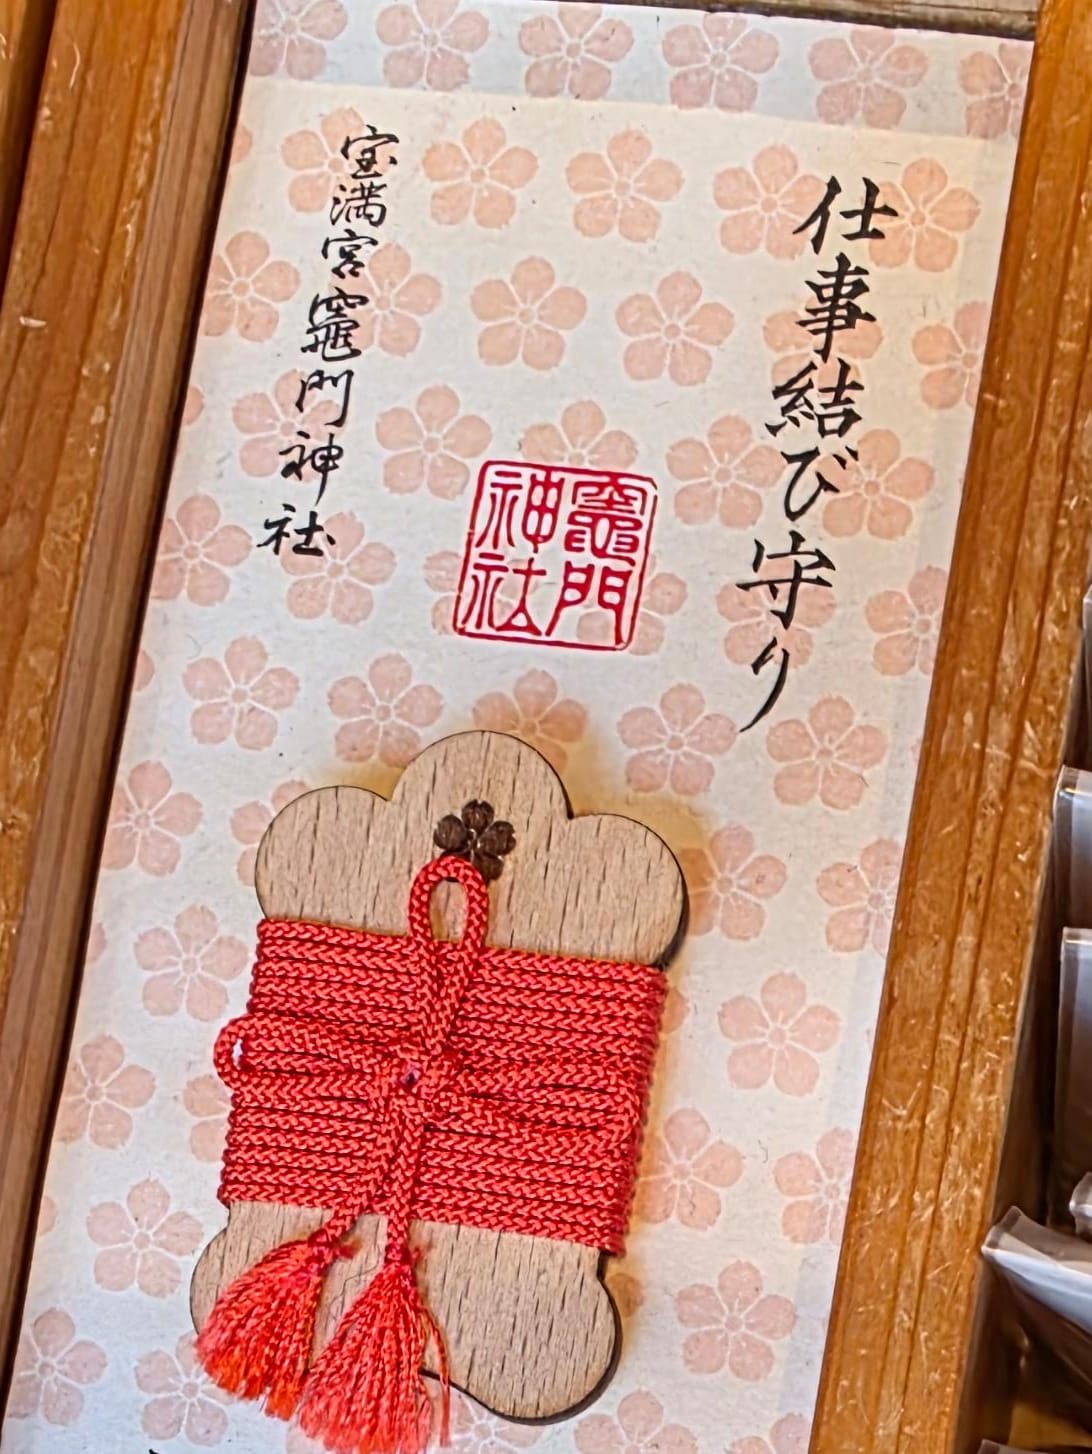 仕事結び守り
竈門
神社
宝満宮竈門神社